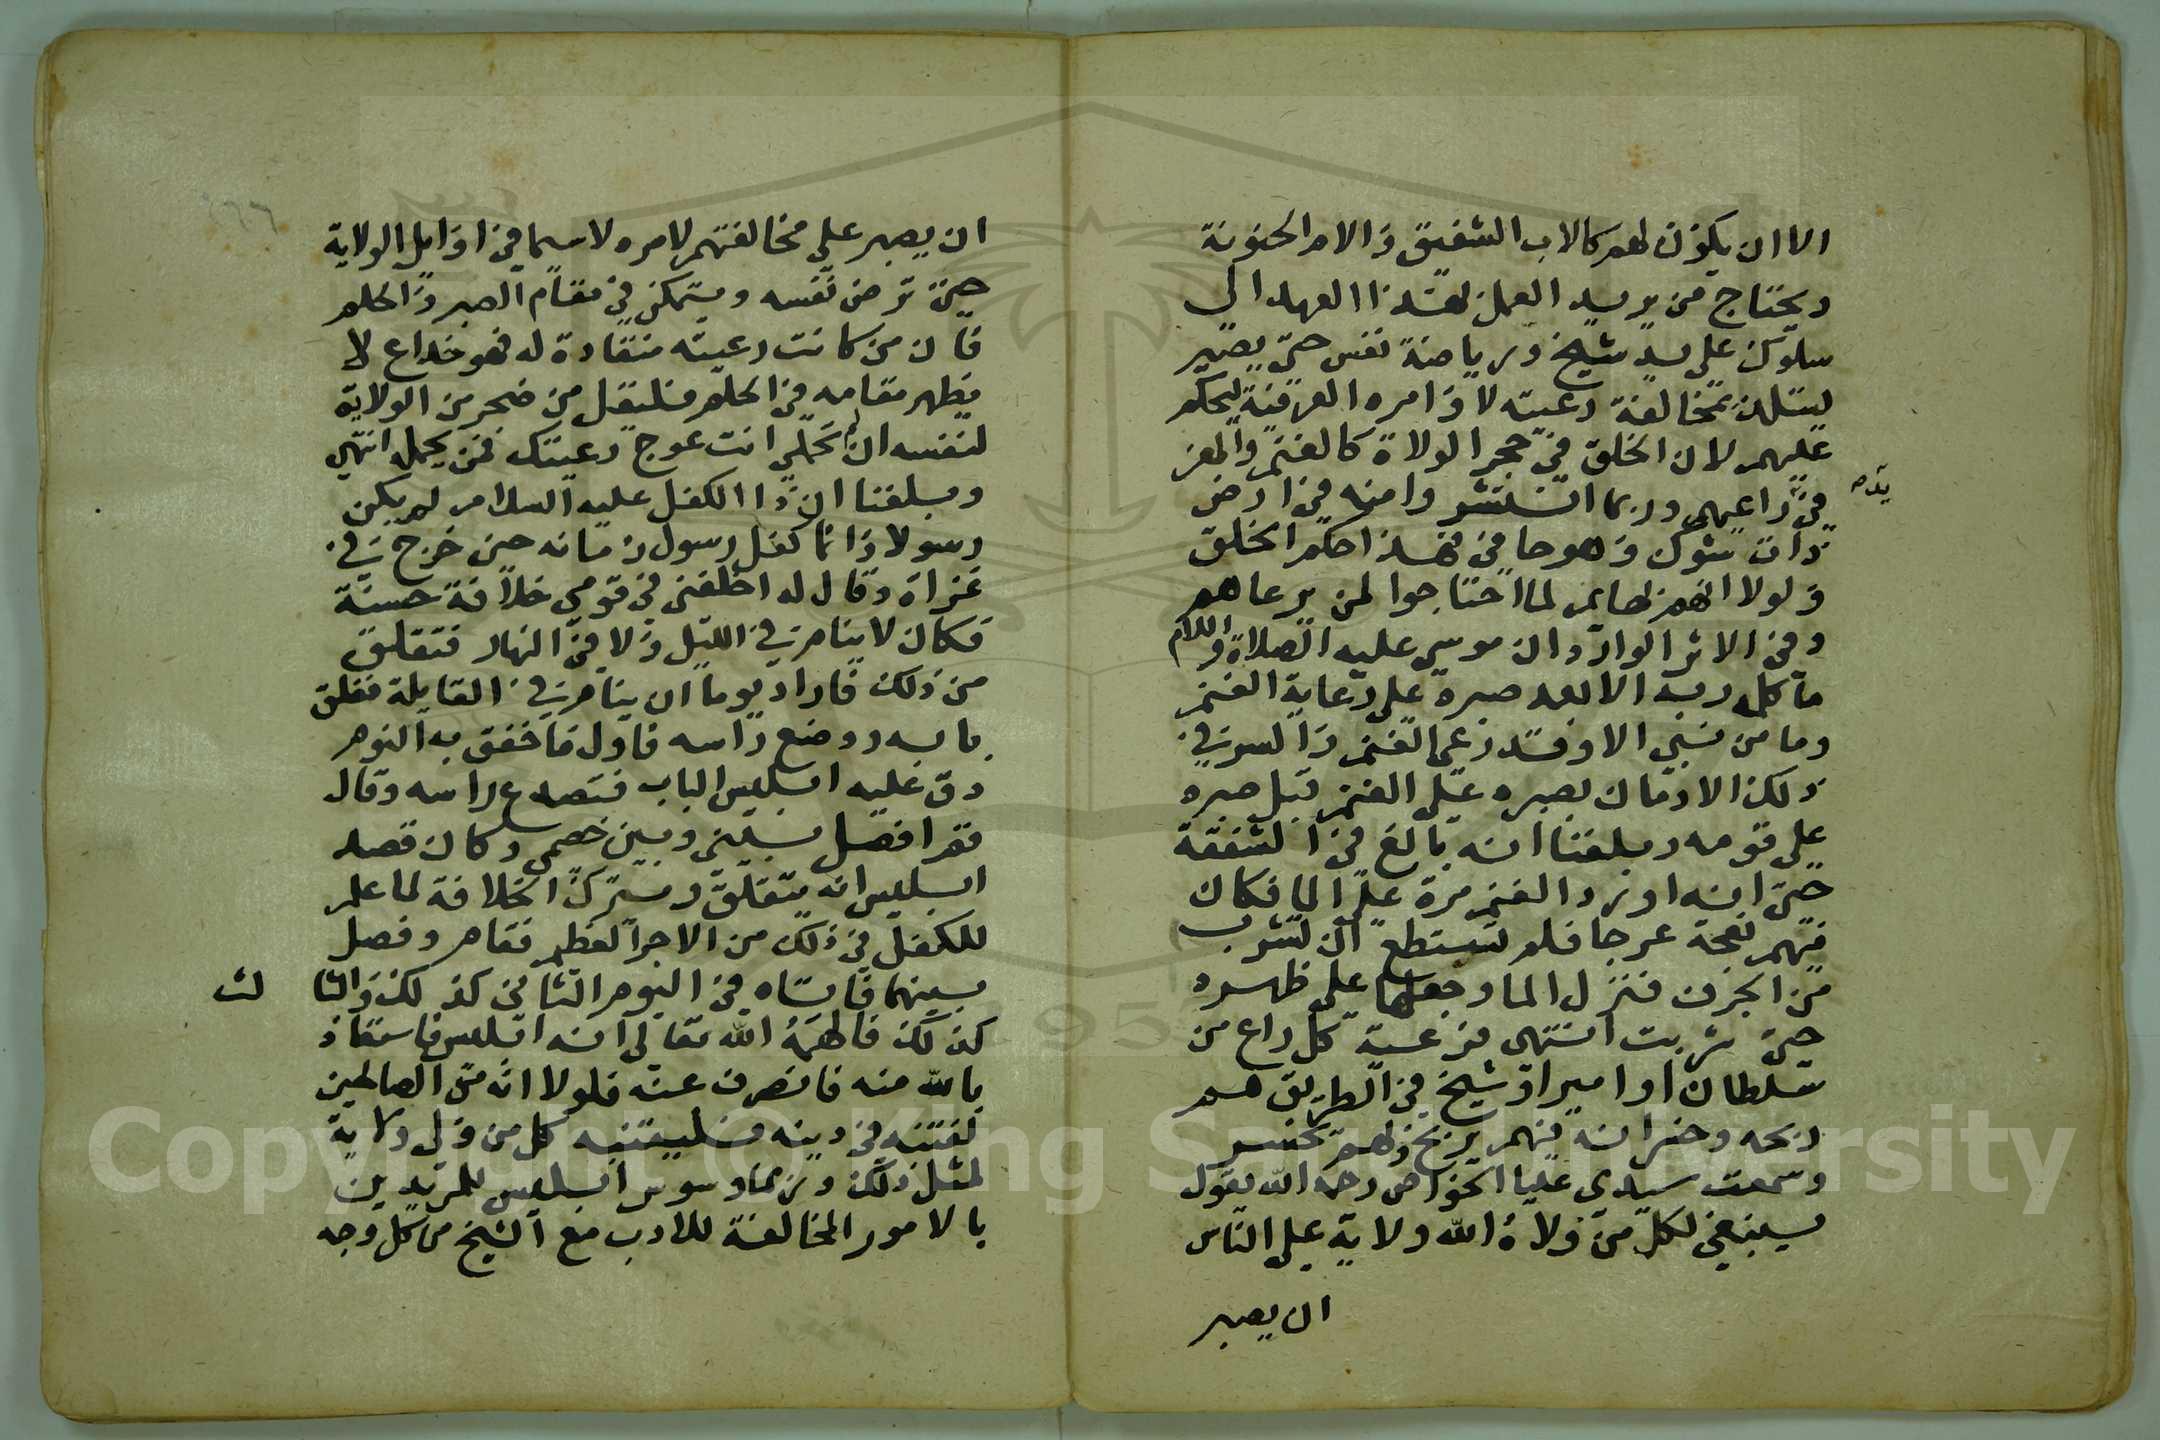 الا ان يكون لهم كالاب الشفيق والام الحنونة
ويحتاج من يريد العمل بهذا العهد الى
سلوك على يد شيخ ورياضة نفس حتى يصير
يتلذذ بمخالفة رعيته لاوامره العرفية ليحكم
عليهم لان الخلق في حجر الولاة كالغنم والمعز
في يد راعيهم وربما انتشر وامنه في ارض
ذات شوك وهو حافي فهذا حكم الخلق
ولولا انهم بهايم لما احتاجوا لمن يرعاهم
وفي الاثر الوارد ان موسى عليه الصلاة والسلام
ما كلمه ربه الا بعد صبره على رعاية الغنم
وما من نبي الا وقد رعى الغنم والسر في
ذلك الادمان بصبره على الغنم قبل صبره
على قومه وبلغنا انه بالغ في الشفقة
حتى انه اورد الغنم مرة على الما فكان
فيهم نعجة عرجا فلم تستطع ان تشرب
من الجرف فنزل الما وجعلها على ظهره
حتى شربت انتهى فرعية كل راع من
سلطان او امير او شيخ في الطريق هم
ربحه وخسرانه فيهم يربح وبهم يخسر
وسمعت سيدي عليا الخواص رحمه الله يقول
ينبغي لكل من ولاه الله ولاية على الناس
ان يصبر
ان يصبر على مخالفتهم لامره لا سيما في اوايل الولاية
حتى ترض نفسه ويتمكن في مقام الصبر والحلم
فان من كانت رعيته منقادة له فهو خداع لا
يظهر مقامه في الحلم فليقل من ضجر من الولاية
لنفسه ان لم تحملي انت عوج رعيتك فمن يحمله انتهى
وبلغنا ان ذا الكفل عليه السلام لم يكن
رسولا وانما كفل رسول زمانه حين خرج في
غزاة وقال له اخلفني في قومي خلافة حسنة
فكان لا ينام في الليل ولا في النهار فتقلق
من ذلك فاراد يوما ان ينام في القايلة فغلق
بابه ووضع راسه فاول ما خفق به النوم
دق عليه ابليس الباب فتصدع راسه وقال
قم افصل بيني وبين خصمي وكان قصد
ابليس انه يتقلق ويترك الخلافة لما علم
للكفل في ذلك من الاجر العظيم فقام وفصل
بينهما فاتاه في اليوم الثاني كذلك والثالث
كذلك فالهمه الله تعالى انه ابليس فاستعاذ
بالله منه فانصرف عنه فلولا انه من الصالحين
لفتنه في دينه فليتنبه كل من ولى ولاية
لمثل ذلك وربما وسوس ابليس للمريدين
بالامور المخالفة للادب مع الشيخ من كل وجه